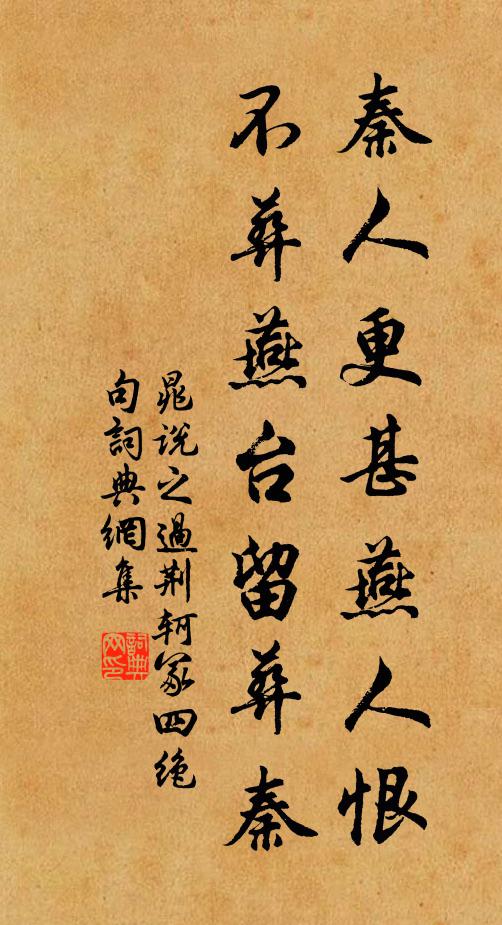 秦人更甚燕人恨
不葬燕台留葬秦
晁說之過荆軻冢四絶
句詞典網集
詞典
网印